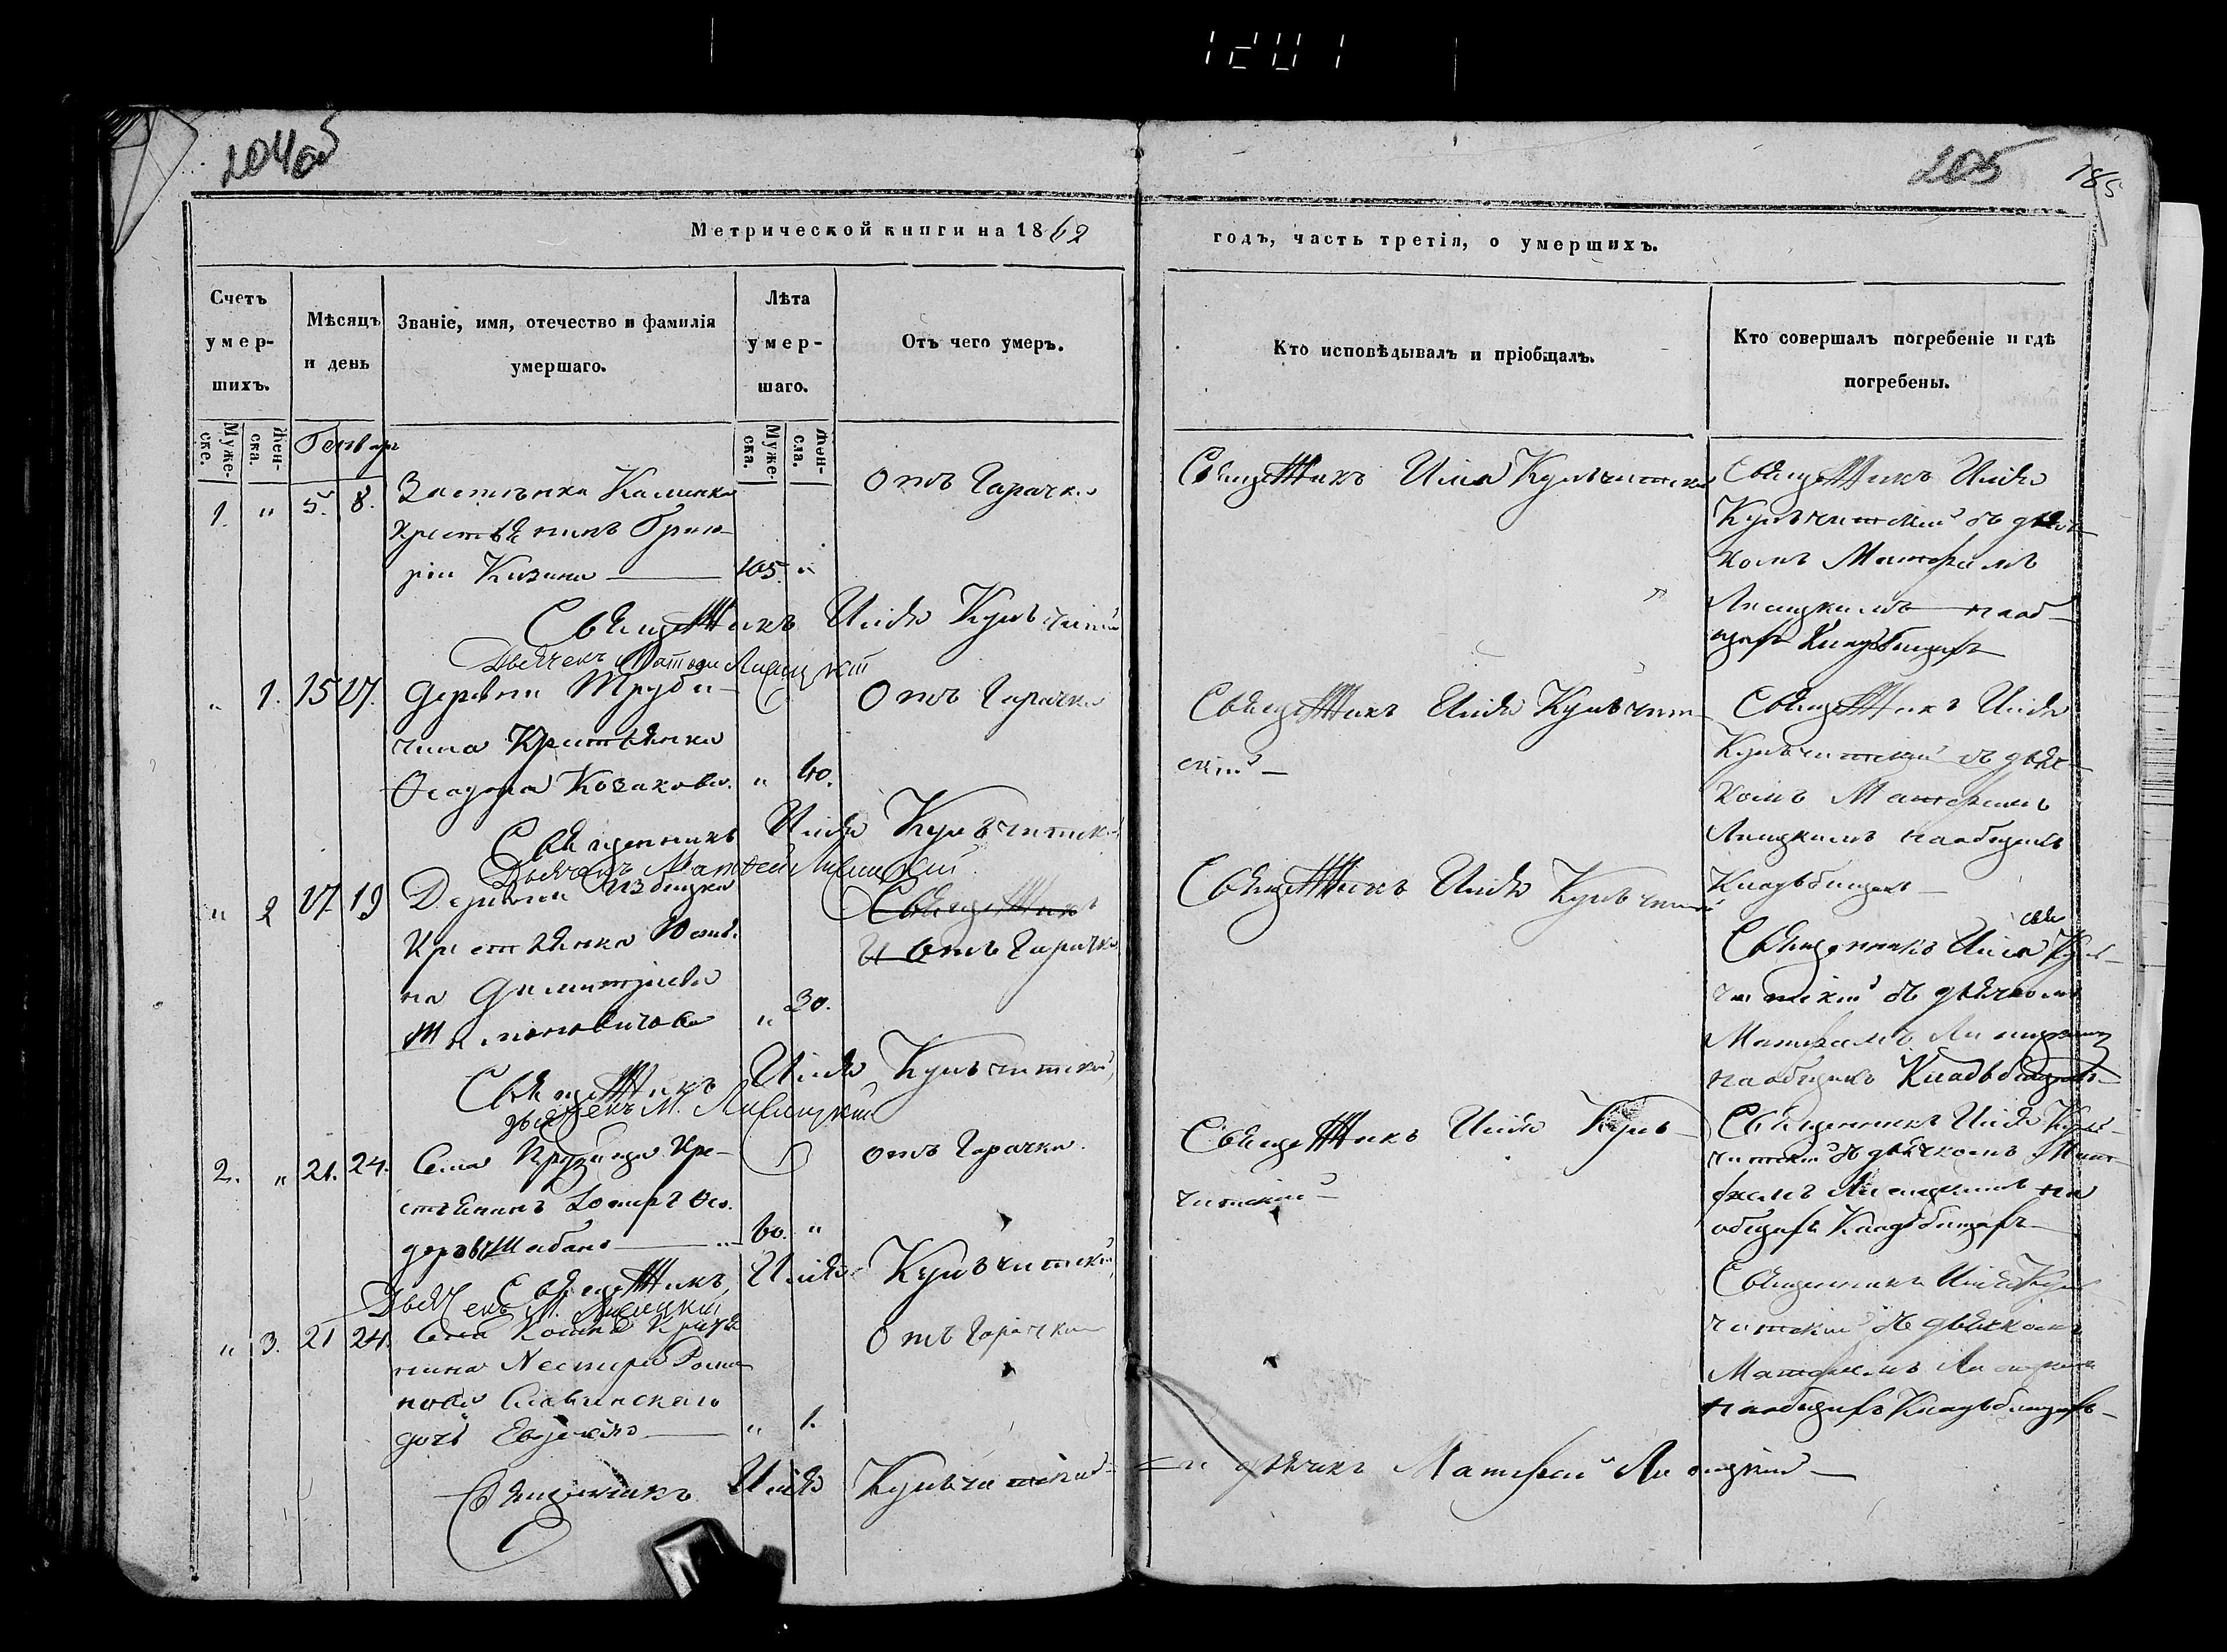 1201
204об
205
185
Метрической книги на 1862
годъ, часть третія, о умершихъ.
Счетъ умер-шихъ.
Мѣсяцъ и день
Званіе, имя, отечество и фамилія умершаго.
Лѣта умер-шаго.
Отъ чего умеръ.
Кто исповѣдывалъ и пріобщалъ.
Кто совершалъ погребеніе и гдѣ погребены.
Муже-ске.
Жен-ска.
Генварь
Муже-ска.
Жен-ска.
1. " 5. 8.
Застѣнка Калинка
крестьянинъ Григо-
рій
105. "
Отъ Гарачки
Священникъ Илія Кульчитскій
Священникъ Илія
Кульчитскій съ дьяч-
комъ Матфеемъ
Лисицкимъ на об-
щемъ Кладбищѣ
Священникъ Илія Кульчитскій
Дьячекъ Матѳей Лисицкій
" 1. 15 17.
Деревни Труби-
чина Крестьянка
Козакова " 40.
Отъ Гарачки
Священникъ Илія Кульчит-
скій
Священникъ Илія
Кульчитскій съ дьяч-
комъ Матфеемъ
Лисицкимъ на общемъ
Кладбищѣ
Священникъ Илія Кульчитскій
Дьячекъ Матѳей Лисицкій
" 2 17. 19
Деревни Избищка
крестьянка
на Димитріева
" 30.
Священникъ
и отъ Гарачки
Священникъ Илія Кульчитскій
Священникъ Илія Куль-
читскій съ дьячкомъ
Матфеемъ Лисицкимъ
на общемъ Кладбищѣ
Священникъ Илія Кульчитскій
дьячекъ М. Лисицкій
2. " 21. 24.
Села Кре-
стьянинъ Ѳео-
доровъ Шабанъ 60. "
отъ Гарачки
Священникъ Илія Куль-
читскій
Священникъ Илія Куль-
читскій съ дьячкомъ Мат-
феемъ Лисицкимъ на
общемъ Кладбищѣ
Священникъ Илія Кульчитскій
Дьячекъ М. Лисицкій
" 3. 21 24.
Села
Нестера Рома-
нова
дочь Евдокія " 1.
Отъ Гарачки
Священникъ Илія Куль-
читскій съ дьячкомъ
Матфеемъ Лисицкимъ
на общемъ Кладбищѣ
Священникъ Илія Кульчитскій
и дьячекъ Матфей Лисицкій